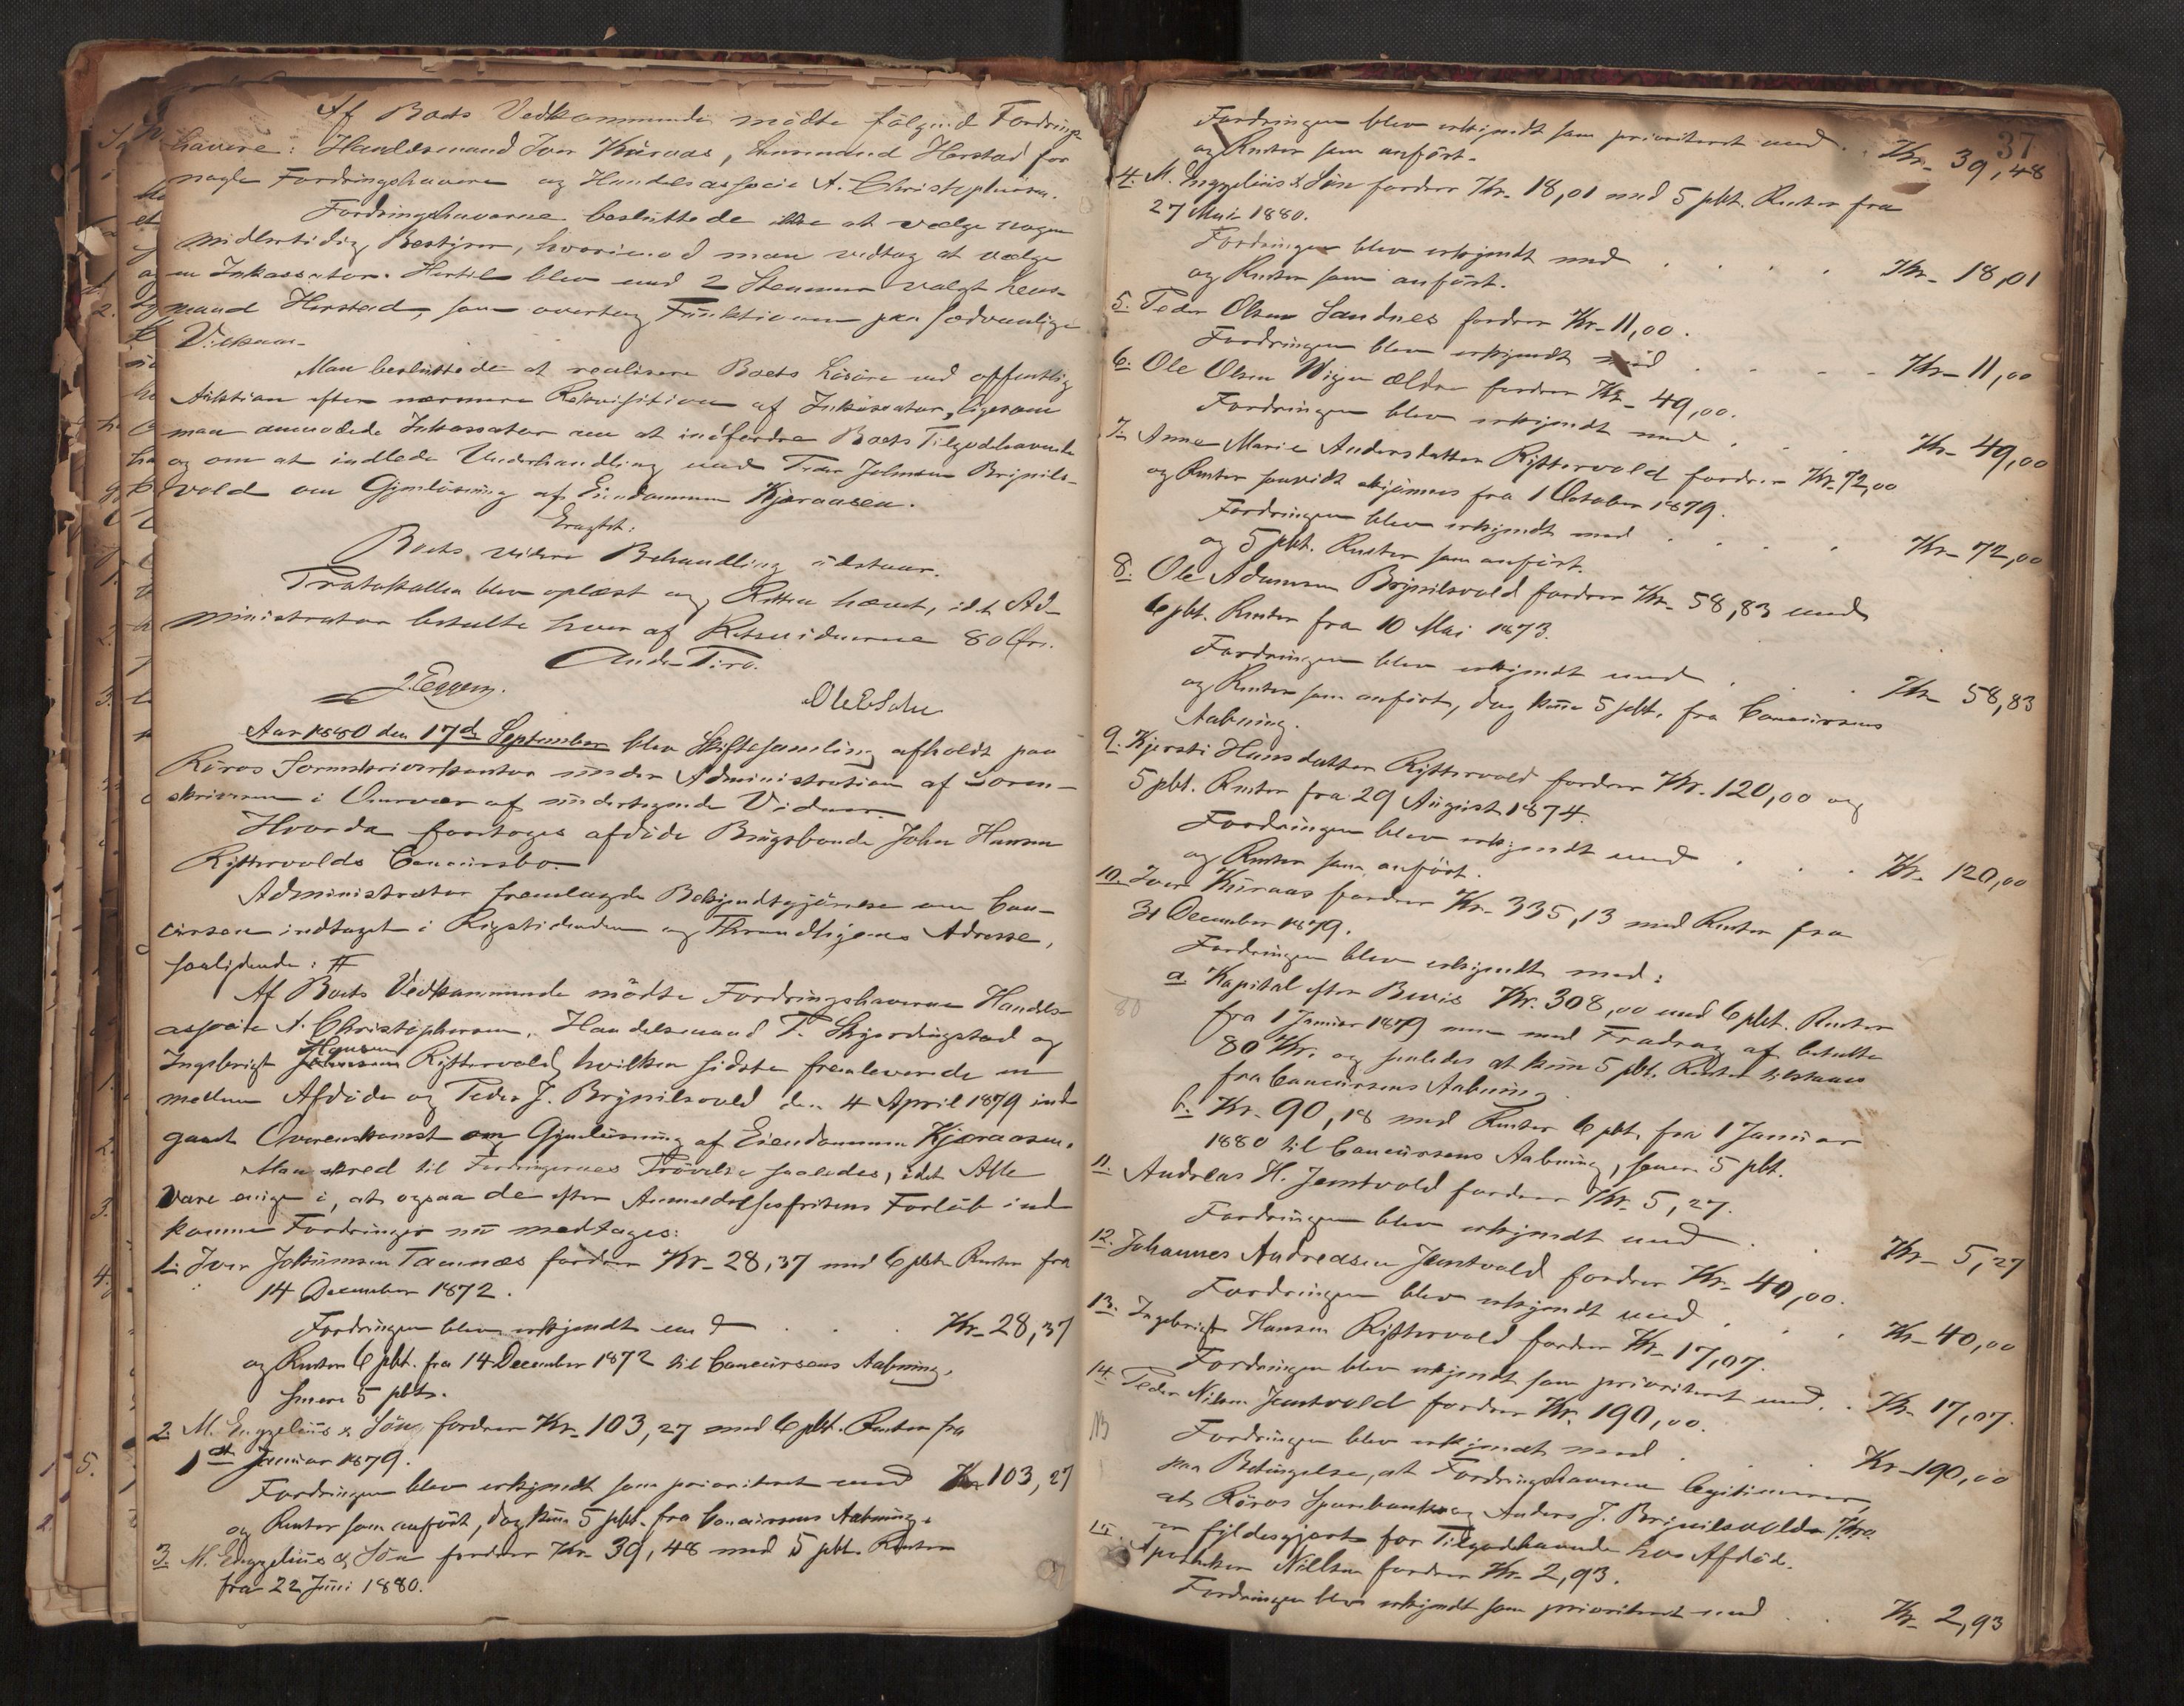 Af Boets Vedkommende mödte fölgende Fordrings-
havere: Handelsmand Iver Kuraas, Lensmand Horstad for
nogle Fordringshavere og Handelsassocie A. Christophersen.
Fordringshaverne besluttede ikke at vælge nogen
midlertidig Bestyrer, hvorimod man vedtog at vælge
en Inkassator. Hertil blev med 2 Stemmer valgt Lens-
mand Horstad, som overtog Funktionen paa sædvanlige
Vilkaar.
Man besluttede at realisere Boets Lösöre ved offentlig
Auktion efter nærmere Rekvisition af Inkassator, ligesom
man anmodede Inkassator om at indfordre Boets Tilgodehavende
og om at indlede Underhandling med Peder Johnsen Brynils-
vold om Gjenlösning af Eiendommen Kjæraasen.
Eragtet:
Boets videre Behandling udstaar.
Protokollen blev oplæst og Retten hævet, idet Ad-
ministrator betalte hver af Retsvidnerne 80 Öre.
J. Eggen.
Aar 1880 den 17de September blev Skiftesamling afholdt paa
Röros Sorenskriverkontor under Administration af Soren-
skriveren i Overvær af undertegnede Vidner.
Hvorda foretoges afdöde Brugsbonde John Hansen
Ryttervolds Concursbo.
Administrator fremlagde Bekjendtgjörelse om Con-
cursen indtaget i Rigstidenden og Throndhjems Adresse,
saalydende: #
Af Boets Vedkommende mödte Fordringshaverne Handels-
associe A. Christophersen, Handelsmand P. Skjerdingstad og
Hansen
Ingebrigt Johnsen Ryttervold, hvilken sidste fremleverede en
mellem Afdöde og Peder J. Brynilsvold den 4 April 1879 ind-
gaaet Overenskomst om Gjenlösning af Eiendommen Kjæraasen.
Man skred til Fordringernes Prövelse saaledes, idet Alle
vare enige i, at ogsaa de efter Anmeldelsesfristens Forlöb ind-
komne Fordringer nu medtages:
1. Iver Jokumsen Tamnæs fordrer Kr. 28,37 med 6 pCt. Renter fra
14 December 1872.
Fordringen blev erkjendt med . . . Kr. 28,37
og Renter 6 pCt. fra 14 December 1872 til Concursens Aabning,
senere 5 pCt.
2. M. Engzelius & Sön fordrer Kr. 103,27 med 6 pCt. Renter fra
1st Januar 1879.
Fordringen blev erkjendt som prioriteret med Kr. 103,27
og Renter som anfört, dog kun 5 pCt. fra Concursens Aabning.
3. M. Engzelius & Sön fordrer Kr. 39,48 med 5 pCt. Renter
fra 22 Juni 1880.
37
Fordringen blev erkjendt som prioriteret med . . Kr. 39,48
og Renter som anfört.
4. M. Engzelius & Sön fordrer Kr. 18,01 med 5 pCt. Renter fra
27 Mai 1880.
Fordringen blev erkjendt med . . . . Kr. 18,01
og Renter som anfört.
5. Peder Olsen Sandnes fordrer Kr. 11,00.
Fordringen blev erkjendt med . . . . Kr. 11,00
6. Ole Olsen Wigen ældre fordrer Kr. 49,00.
Fordringen blev erkjendt med . . . Kr. 49,00
7. Anne Marie Andersdatter Ryttervold fordrer Kr. 72,00
og Renter saavidt skjönnes fra 1 October 1879.
Fordringen blev erkjendt med . . . . Kr. 72,00
og 5 pCt. Renter som anfört.
8. Ole Adamsen Brynilsvold fordrer Kr. 58,83 med
6 pCt. Renter fra 10 Mai 1873.
Fordringen blev erkjendt med . . . Kr. 58,83
og Renter som anfört, dog kun 5 pCt. fra Concursens
Aabning.
9. Kjersti Hansdatter Ryttervold fordrer Kr. 120,00 og
5 pCt. Renter fra 29 August 1874.
Fordringen blev erkjendt med . . . Kr. 120,00
og Renter som anfört.
10. Iver Kuraas fordrer Kr. 335,13 med Renter fra
31 December 1879.
Fordringen blev erkjendt med:
a. Kapital efter Bevis Kr. 308,00 med 6 pCt. Renter
fra 1 Januar 1879 men med Fradrag af betalte
80 Kr. og saaledes at kun 5 pCt. Renter tilstaaes
fra Concursens Aabning.
b. Kr. 90,18 med Renter 6 pCt. fra 1 Januar
1880 til Concursens Aabning, senere 5 pCt.
11. Andreas H. Jemtvold fordrer Kr. 5,27.
Fordringen blev erkjendt med . . Kr. 5,27
12. Johannes Andreasen Jemtvold fordrer Kr. 40,00.
Fordringen blev erkjendt med . . . Kr. 40,00
13. Ingebrigt Hansen Ryttervold fordrer Kr. 17,07.
Fordringen blev erkjendt som prioriteret med . . Kr. 17,07.
14. Peder Nilsen Jemtvold fordrer Kr. 190,00.
Fordringen blev erkjendt med . . . Kr. 190,00
paa Betingelse, at Fordringshaveren legitimerer,
at Röros Sparebank og Anders J. Brynilsvolds
er fyldestgjort for Tilgodehavende hos Afdöde.
15. Apotheker Nilsen fordrer Kr. 2,93.
Fordringen blev erkjendt som prioriteret med . . Kr. 2,93